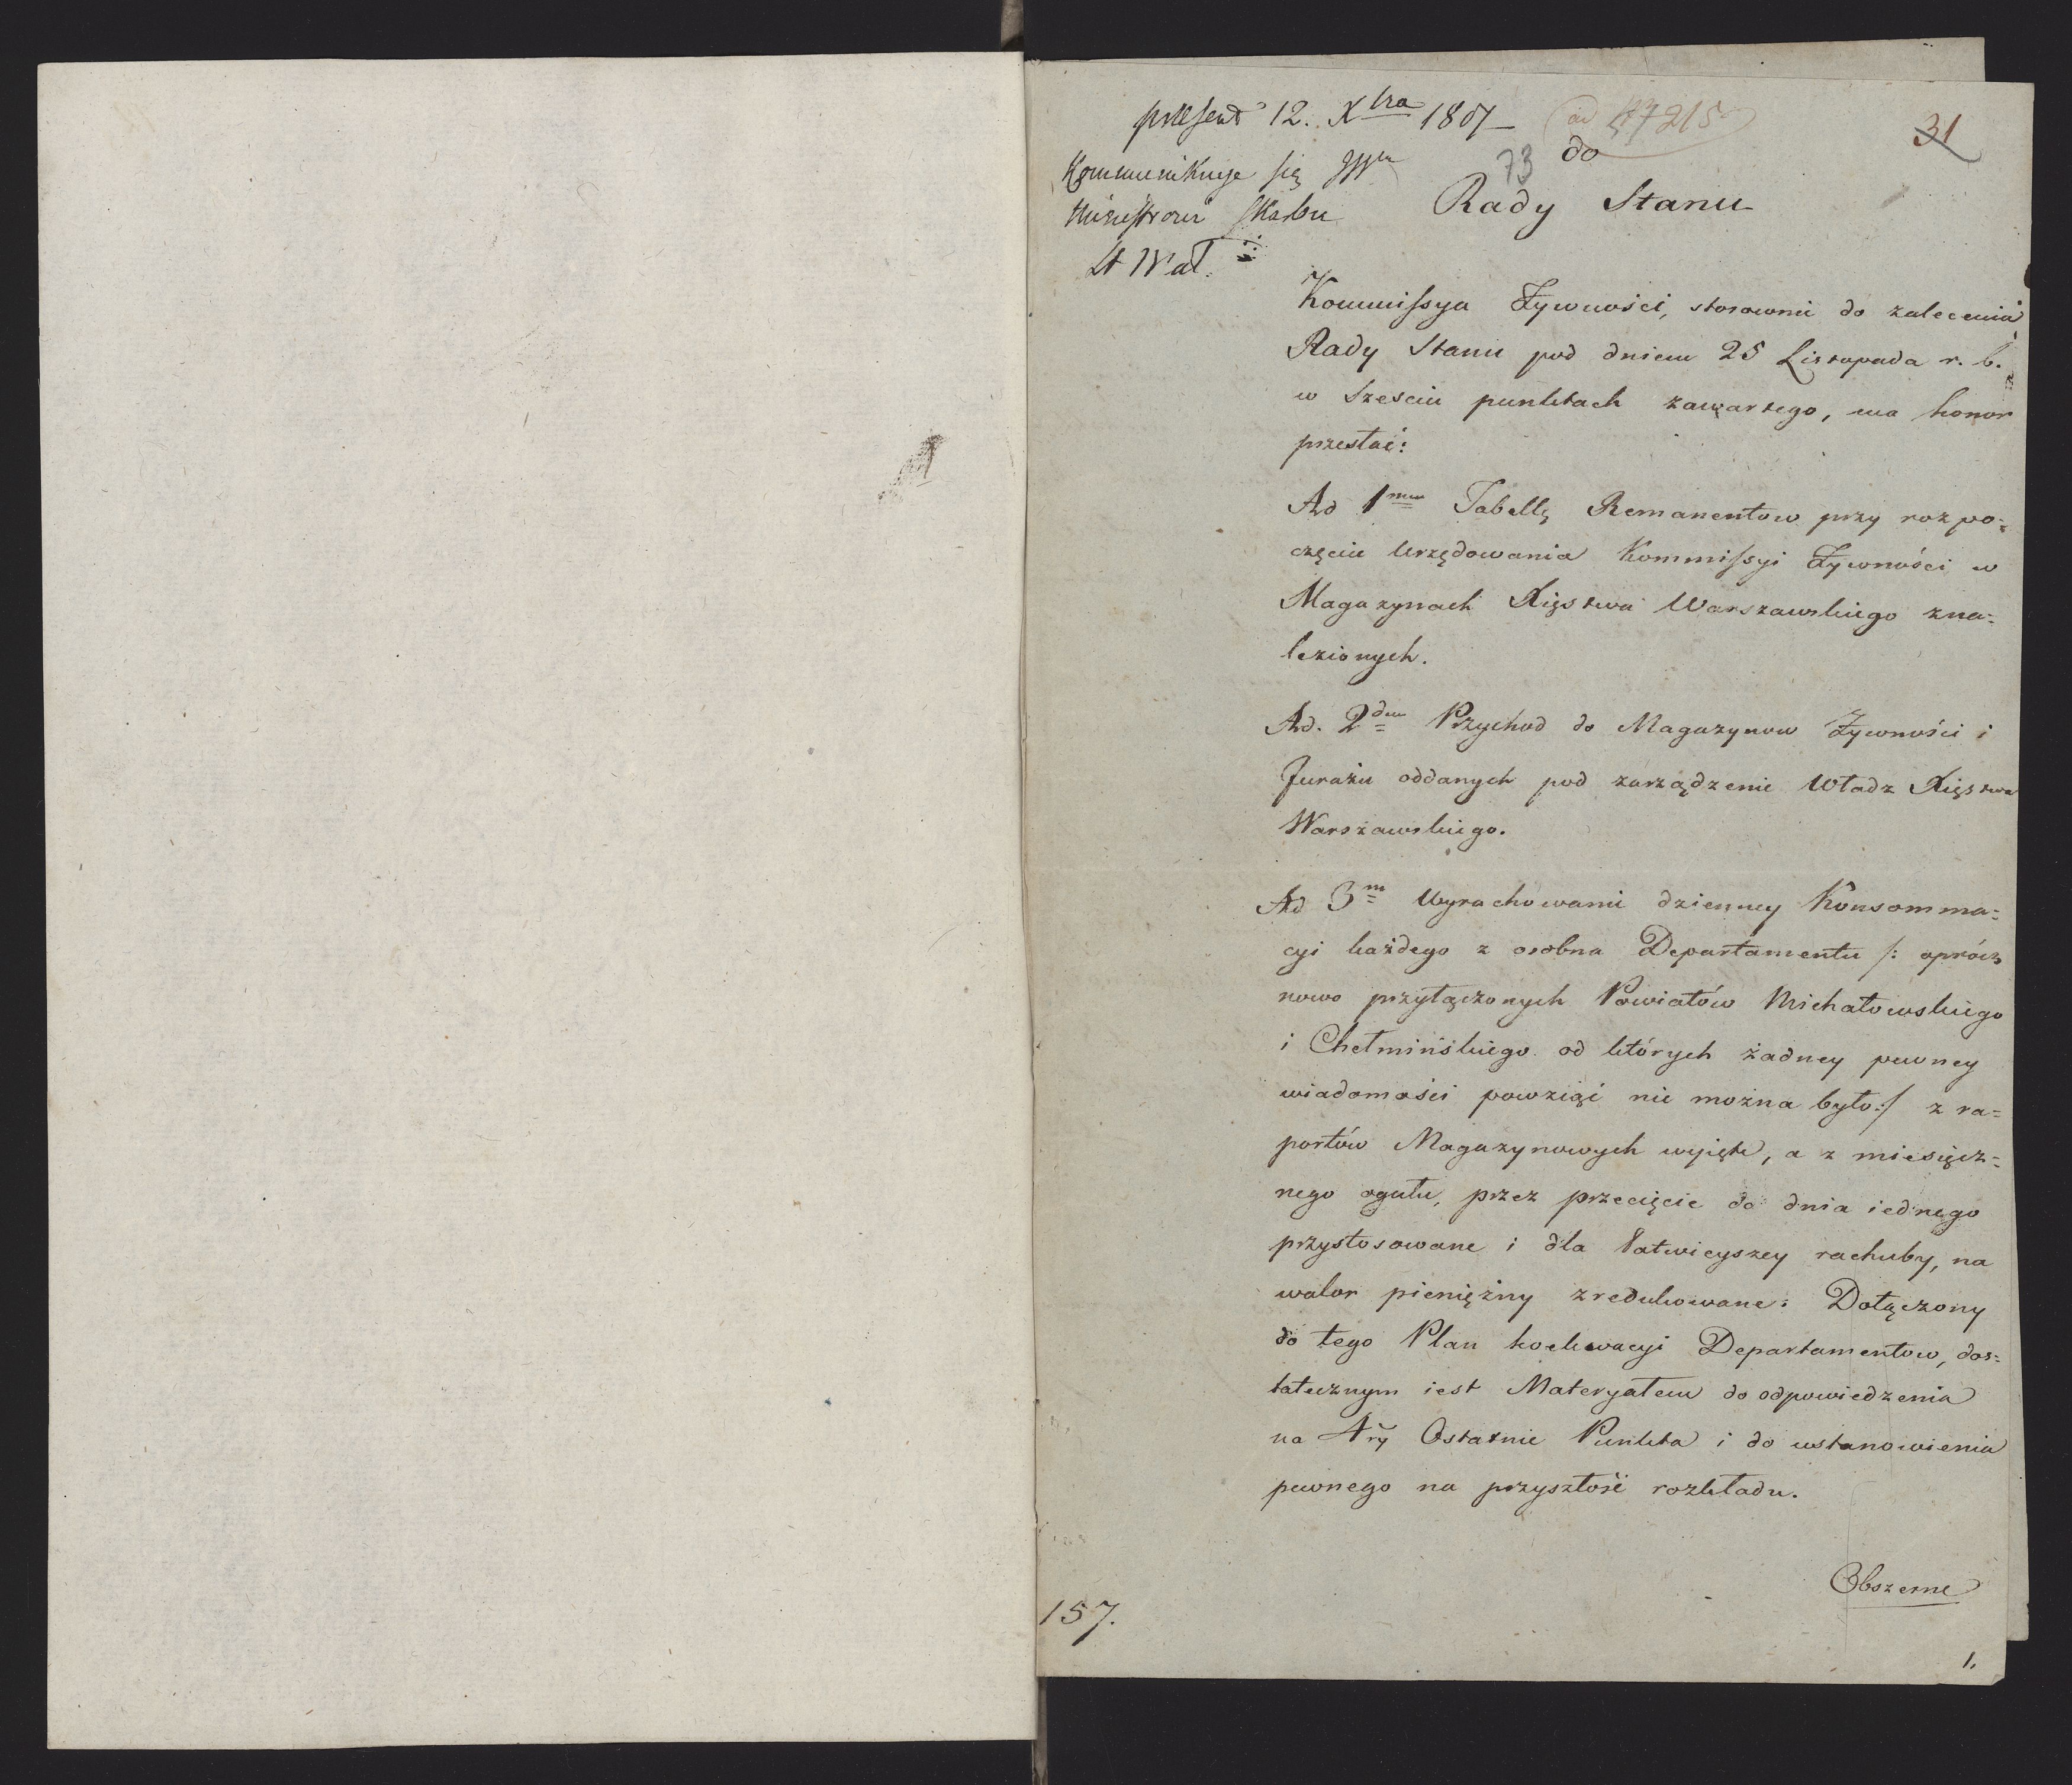 præsent 12. Xbra 1807
ad 47215
31
73
do
Kommunikuje się JW
Ministrowi Skarbu
Rady Stanu
Kommissya Żywności, stosownie do zalecenia
Rady Stanu pod dniem 25 Listopada r. b.
w Szesciu punktach zawartego, ma honor
przesłać:
Ad 1mum Tabellę Remanentow przy rozpo=
częciu Urzędowania Kommissyi Żywności w
Magazynach Xięstwa Warszawskiego zna=
lezionych.
Ad. 2dum Przychod do Magazynow Żywności i
Furażu oddanych pod zarządzenie Władz Xięstwa
Warszawskiego.
Ad 3m Wyrachowanie dzienney Konsomma=
cyi każdego z osobna Departamentu /: oprócz
nowo przyłączonych Powiatów Michałowskiego
i Chełmińskiego od których żadney pewney
wiadomości powziąć nie można było :/ z ra=
portów Magazynowych wyięte, a z miesięcz=
nego ogułu, przez przecięcie do dnia iednego
przystosowane i dla łatwieyszey rachuby, na
walor pieniężny zredukowane: Dołączony
do tego Plan lokacyi Departamentow, dos=
tatecznym iest Materyałem do odpowiedzenia
na 4ry Ostatnie Punkta i do ustanowienia
pewnego na przyszłość rozkładu.
Obszerne
157.
1.